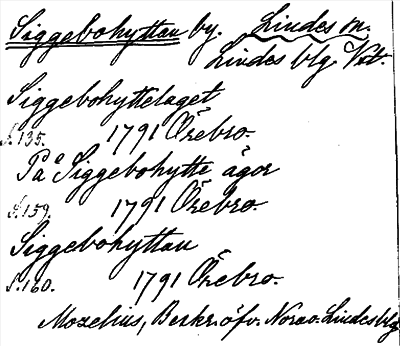 Siggebohyttan by. Lindes sn.
Lindes blg. Vstl.
Siggebohyttelaget
s. 135. 1791 Örebro.
På Siggebohytte ägor
s. 159. 1791 Örebro.
Siggebohyttan
s. 160. 1791 Örebro.
Moxelius, Beskr. öfv. Nora o. Lindes blg